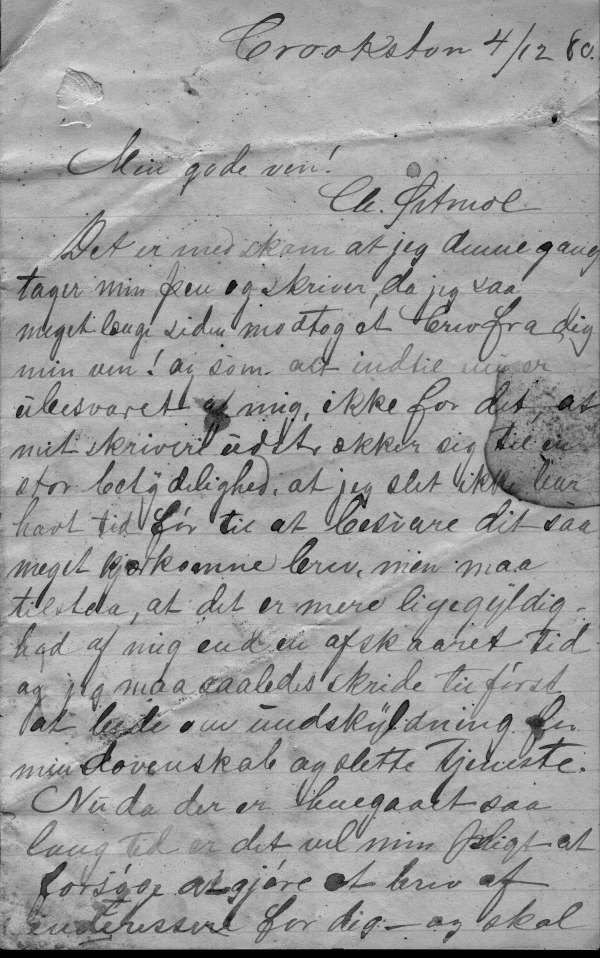 Crookston 4/12 80.
Min gode ven!
Ch. Østmoe
Det er med skam at jeg denne gang
tager min pen og skriver, da jeg saa
meget lenge siden modtog et brev fra dig
min ven! og som alt indtil nu er
ubesvaret af mig, ikke for det, at
mit skriveri udstrækker sig til en
stor betydelighed, at jeg slet ikke har
havt tid før til at besvare dit saa
meget kjærkomne brev, men maa
tilstaa, at det er mere ligegyldig-
hed af mig end en afskaaret tid
og jeg maa saaledes skride til først
at bede om undskyldning for
min dovenskab og slette tjeneste.
Nu da der er hengaaet saa
lang tid er det vel min pligt at
forsøge at gjøre et brev af
interesse for dig - og skal